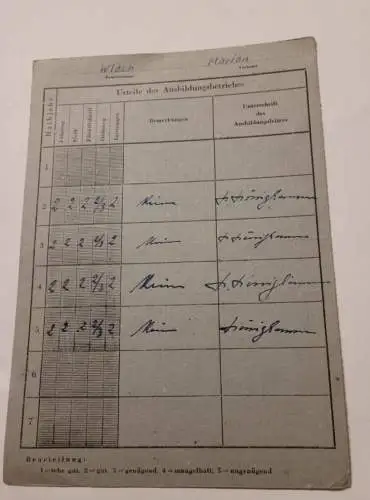 Wlach Marian
Familienname Vorname
Urteile des Ausbildungsbetriebes
Halbjahr Führung Fleiß Pünktlichkeit Ordnung Leistungen Bemerkungen Unterschrift des Ausbildungsleiters
1
2 2 2 2 2/3 2 Keine
3 2 2 2 2/3 2 Keine
4 2 2 2 2/3 2 Keine
5 2 2 2 2/3 2 Keine
6
7
Beurteilung:
1 = sehr gut, 2 = gut, 3 = genügend, 4 = mangelhaft, 5 = ungenügend